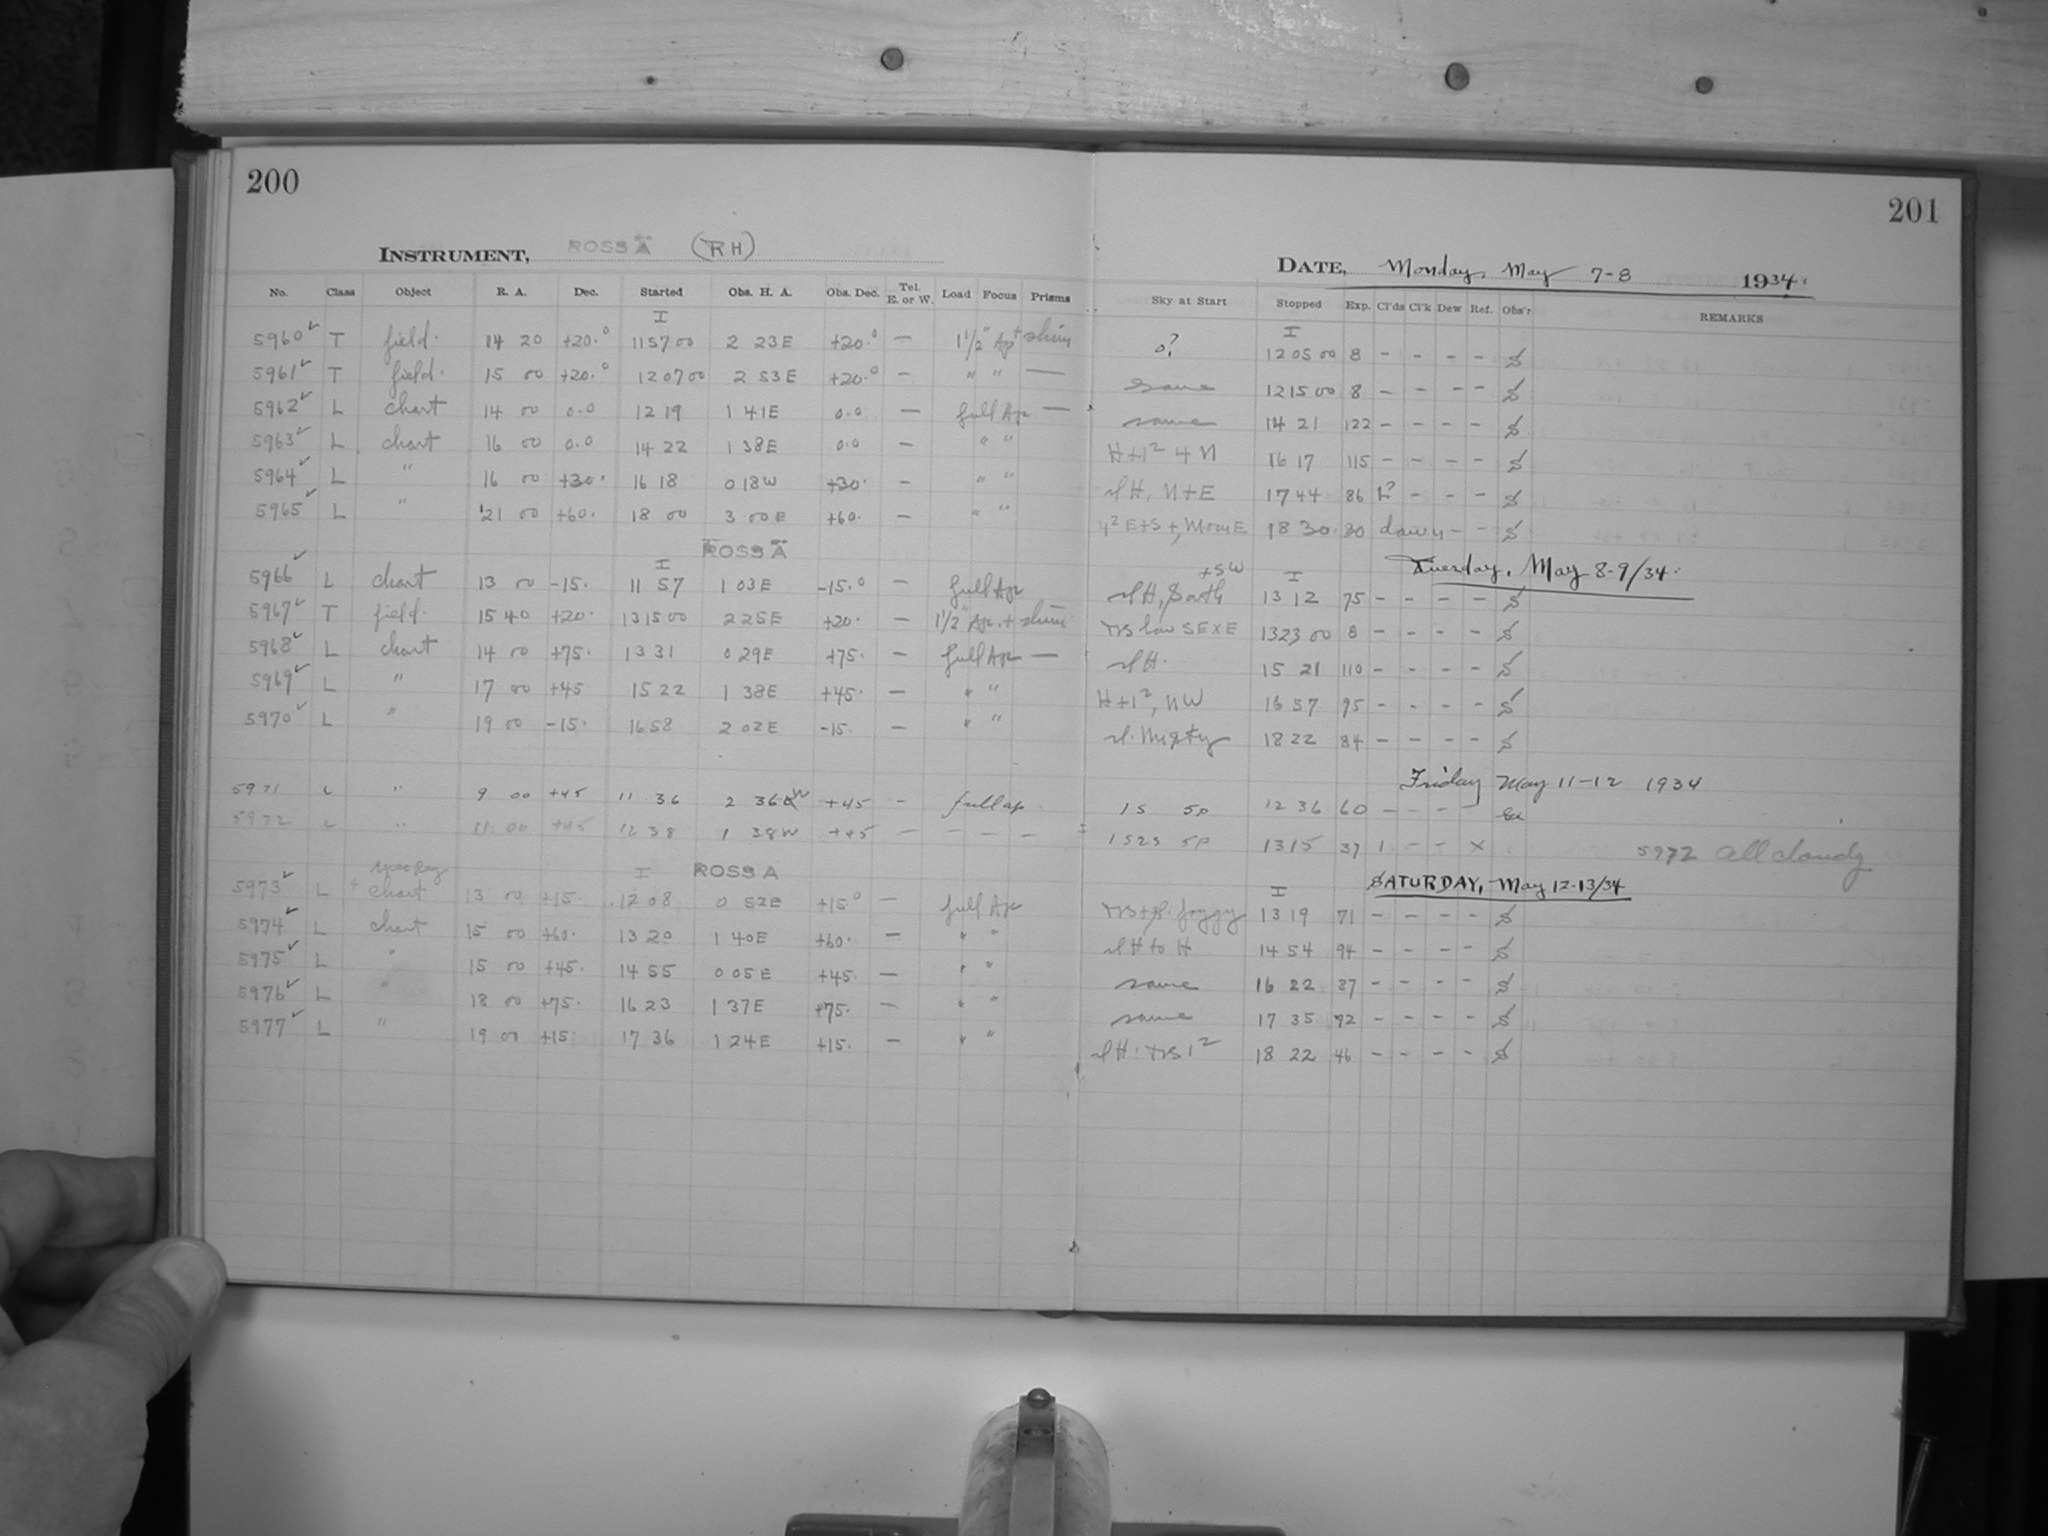 200
INSTRUMENT, ROSS A (RH)
No. Class Object R. A. Dec. Started Obs. H. A. Obs. Dec. Tel. E. or W. Load Focus Prisms
I
5960 ✓ T field. 14 20 +20.° 11 57 00 2 23 E +20.° — 1 1/2" Ap +
5961 ✓ T field. 15 00 +20.° 12 07 00 2 53 E +20.° — " " —
5962 ✓ L chart 14 00 0.0 12 19 1 41 E 0.0 — full Ap —
5963 ✓ L chart 16 00 0.0 14 22 1 38 E 0.0 — " "
5964 ✓ L " 16 00 +30. 16 18 0 18 W +30. — " "
5965 ✓ L " 21 00 +60. 18 00 3 00 E +60. — " "
ROSS A
I
5966 ✓ L chart 13 00 -15. 11 57 1 03 E -15.° — full Ap
5967 ✓ T field. 15 40 +20. 13 15 00 2 25 E +20. — 1 1/2" Ap. +
5968 ✓ L chart 14 00 +75. 13 31 0 29 E +75. — full Ap —
5969 ✓ L " 17 00 +45 15 22 1 38 E +45. — " "
5970 ✓ L " 19 00 -15. 16 58 2 02 E -15. — " "
5971 L " 9 00 +45 11 36 2 36 W +45 — full ap.
5972 L " 11 00 +45 12 38 1 38 W +45 — — — —
I ROSS A
5973 ✓ L + chart 13 00 +15. 12 08 0 52 E +15° — full Ap
5974 ✓ L chart 15 00 +60. 13 20 1 40 E +60. — " "
5975 ✓ L " 15 00 +45. 14 55 0 05 E +45. — " "
5976 ✓ L " 18 00 +75. 16 23 1 37 E +75. — " "
5977 ✓ L " 19 00 +15 17 36 1 24 E +15. — " "
201
DATE, Monday, May 7-8 1934.
Sky at Start Stopped Exp. Cl'ds Cl'k Dew Ref. Obs'r REMARKS
I
0? 12 05 00 8 - - - - S
same 12 15 00 8 - - - - S
same 14 21 122 - - - - S
H+1² 4 N 16 17 115 - - - - S
H, N+E 17 44 86 - - - S
4² E+S +, Moon E 18 30 30 dawn - - S
Tuesday, May 8-9/34.
+SW I
H, South 13 12 75 - - - - S
low SE×E 13 23 00 8 - - - - S
H. 15 21 110 - - - - S
H+1², NW 16 57 95 - - - - S
18 22 84 - - - - S
Friday May 11-12 1934
1S 5P 12 36 60 - - - -
1S2S 5P 13 15 37 1 - - × 5972 all cloudy
SATURDAY, May 12-13/34
I
foggy 13 19 71 - - - - S
H to H 14 54 94 - - - - S
same 16 22 87 - - - - S
same 17 35 92 - - - - S
H. 1² 18 22 46 - - - - S